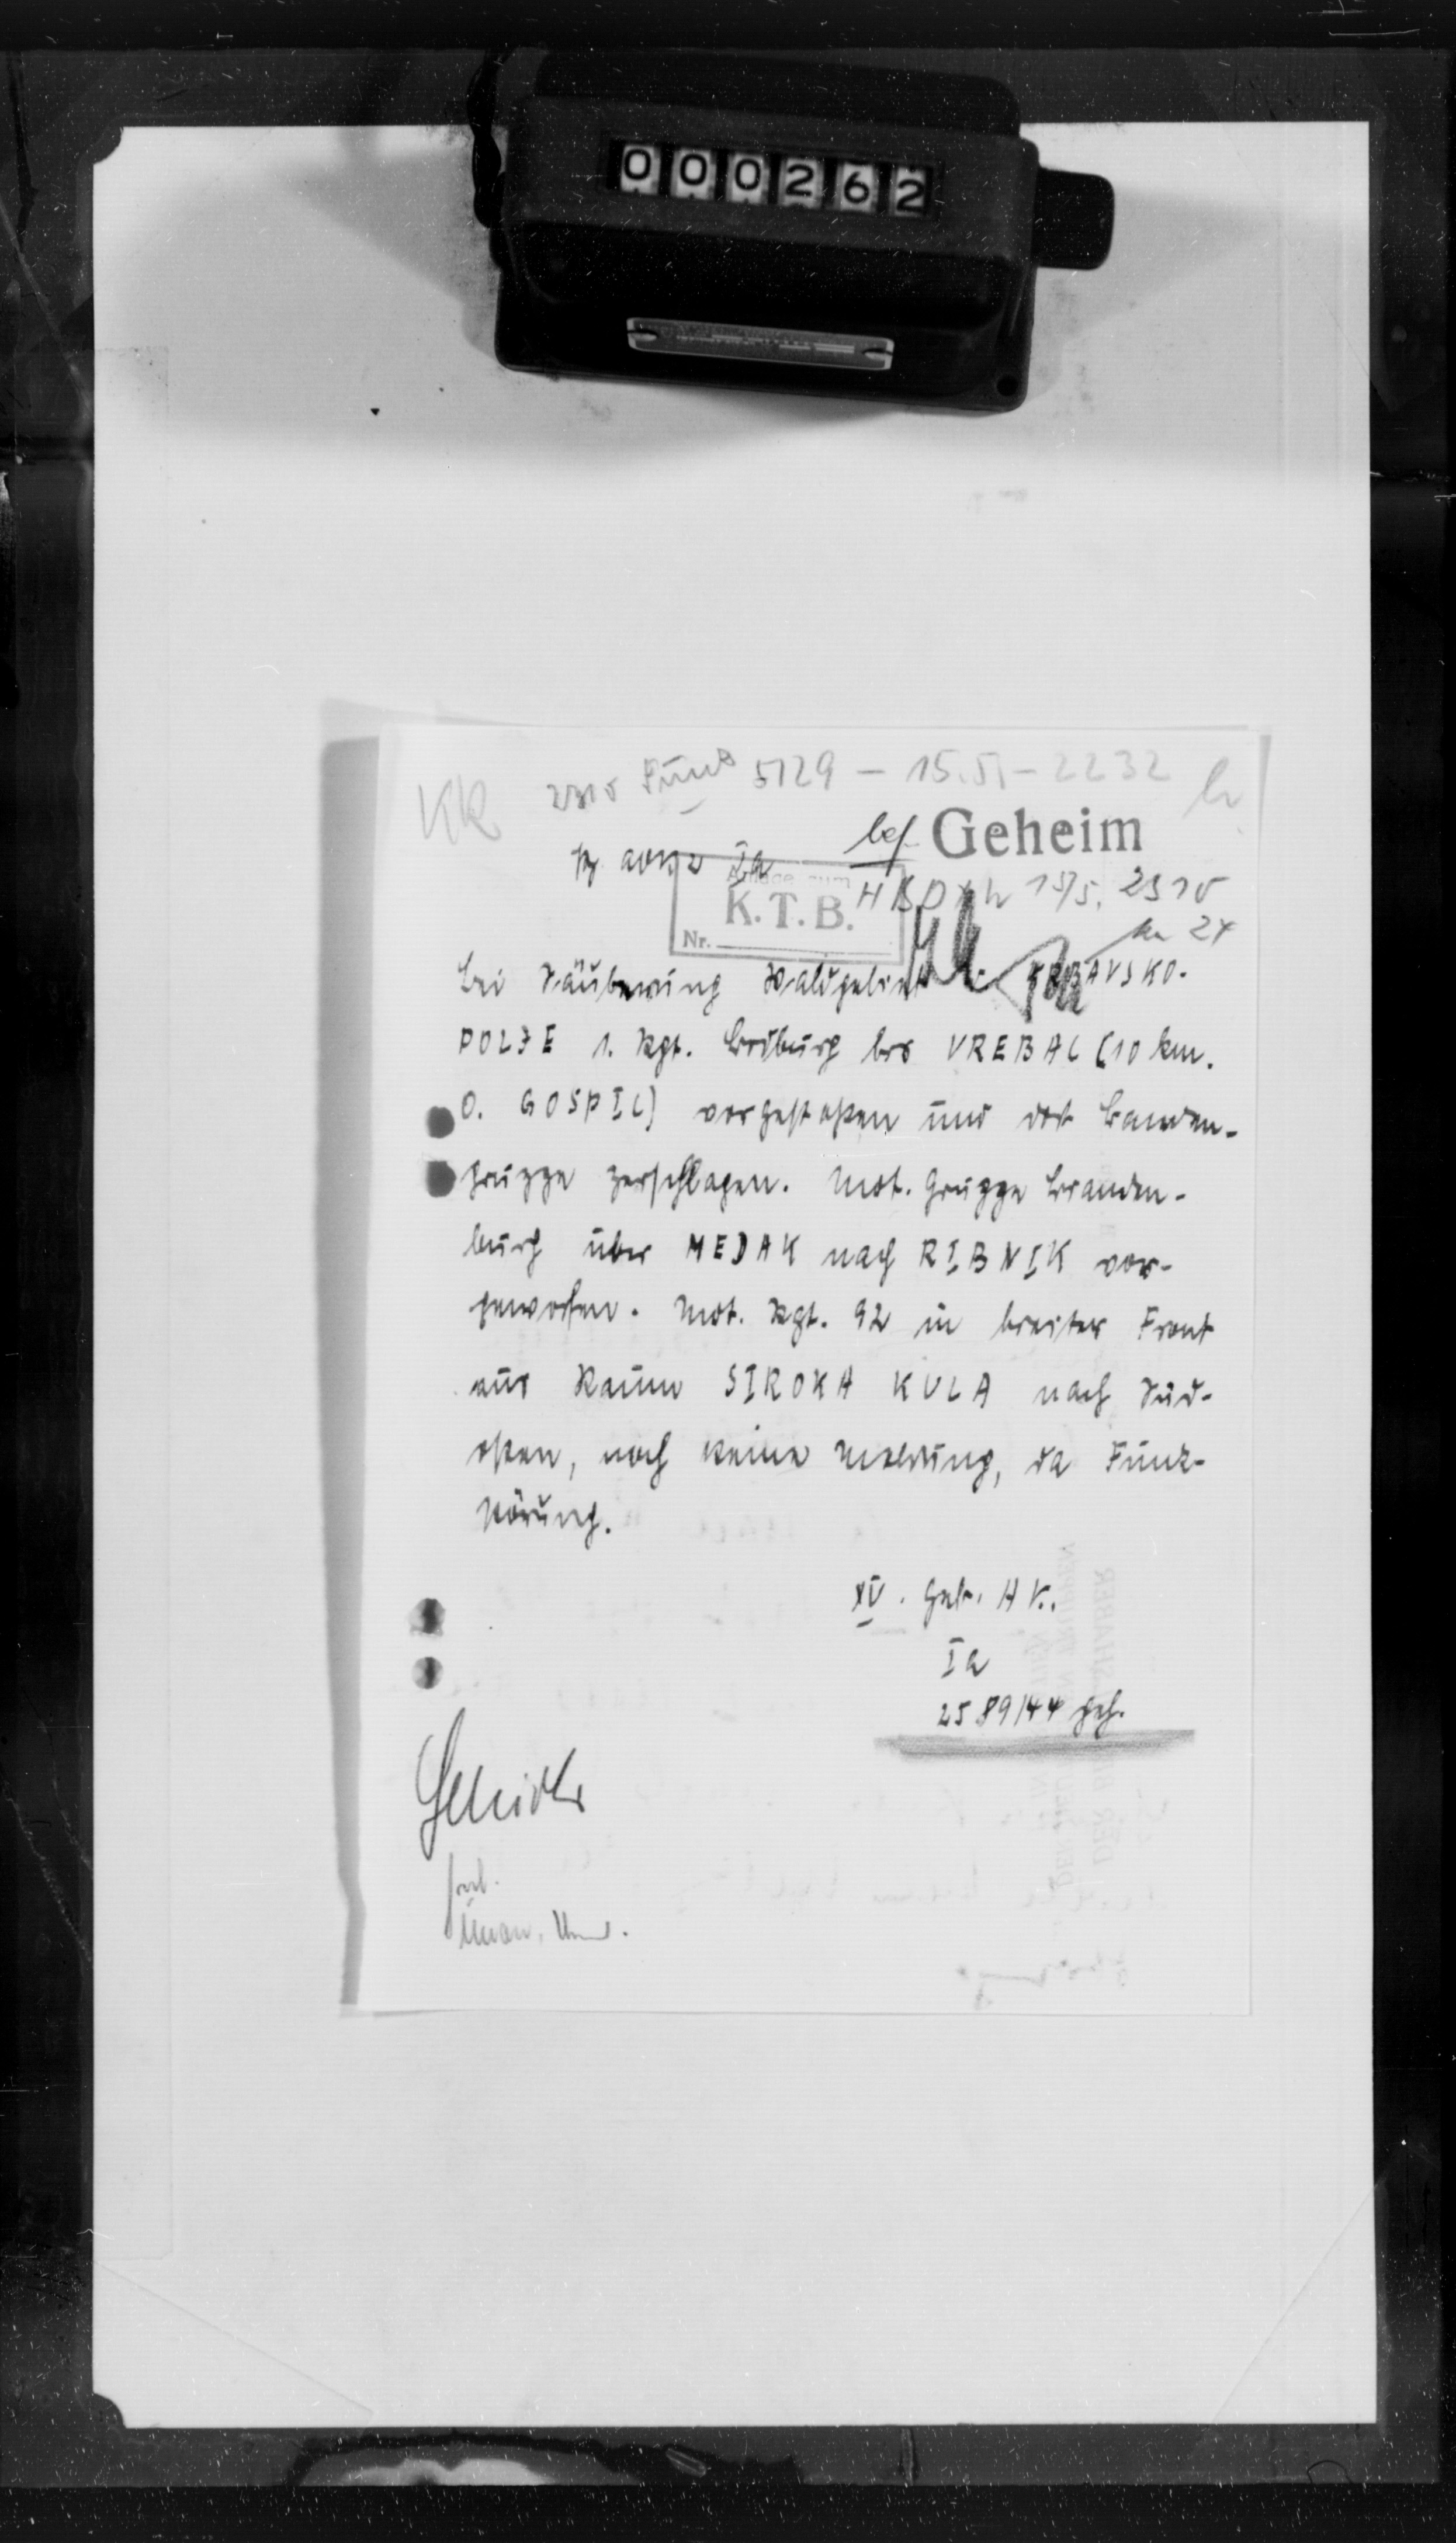 000262
KR 2310 Funk 5129 – 15.5. – 2232
bef. Geheim
Pz AOK 2 Ia
Anlage zum
K.T.B.
Nr.
HBDXH 15/5. 2310
24
Bei Säuberung Waldgebiet KRBAVSKO-
POLJE 1. Rgt. Brdburg bis VREBAC (10 km.
O. GOSPIC) vorgestoßen und dort Banden-
gruppe zerschlagen. Mot. Gruppe Branden-
burg über MEDAK nach RIBNIK vor-
geworfen. Mot. Rgt. 92 in breiter Front
aus Raum SIROKA KULA nach Süd-
osten, noch keine Meldung, da Funk-
störung.
XV. Geb. A K.
Ia
2589/44 geh.